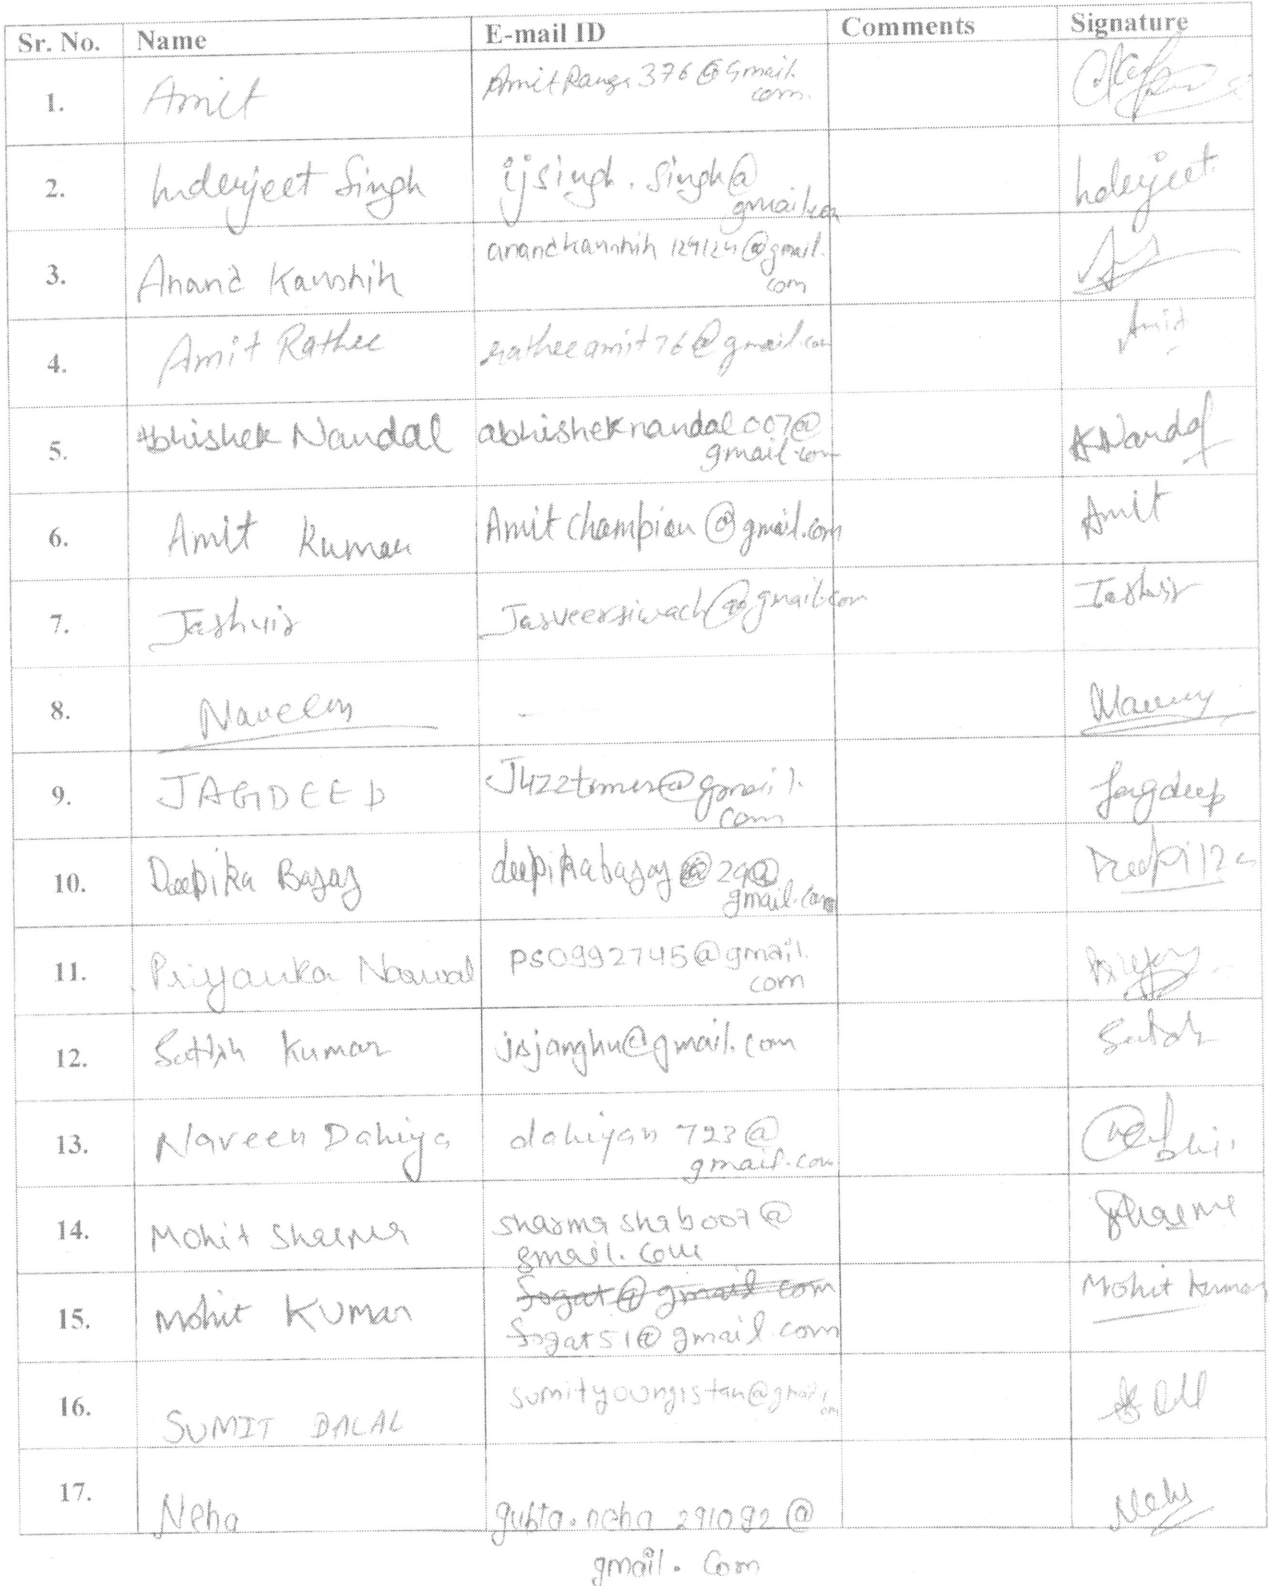 Sr. No. Name E-mail ID Comments Signature
1. Amit AmitRanga376@Gmail.
com.
2. Inderjeet Singh ijsingh.singh@ Inderjeet
gmail.com
3. Anand Kaushik anandkaushik129124@gmail.
com
4. Amit Rathee ratheeamit76@gmail.com Amit
5. Abhishek Nandal abhisheknandal007@ ANandal
gmail.com
6. Amit Kumar Amitchampion@gmail.com Amit
7. Jasbvir Jasveersiwach@gmail.com Jasbvir
8. Naveen -
9. JAGDEEP J4zztimes@gmail. Jagdeep
com
10. Deepika Bajaj deepikabajaj@29@ Deepika
gmail.com
11. Priyanka Narwal ps0992745@gmail.
com
12. Satish Kumar jsjanghu@gmail.com Satish
13. Naveen Dahiya dahiyan723@
gmail.com
14. Mohit Sharma sharmashab007@ Sharma
gmail.com
15. Mohit KUMAR fogat@gmail com Mohit Kumar
fogat51@gmail.com
16. SUMIT DALAL sumityoungistan@gmail.
com
17. Neha gupta.neha291092@ Neha
gmail.com